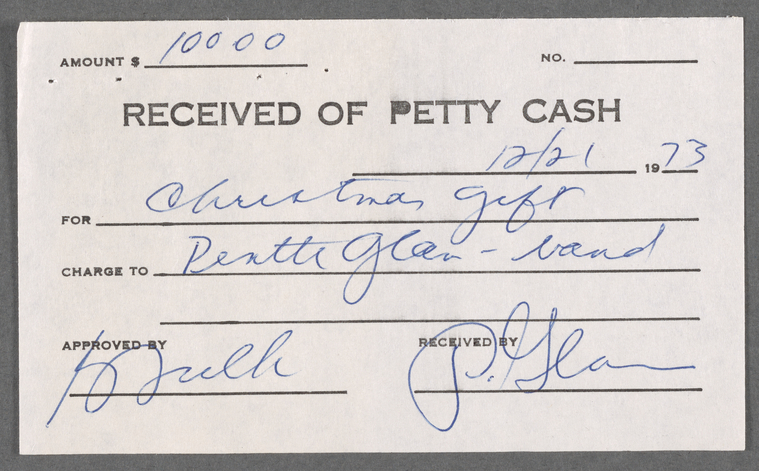 AMOUNT $ 100 00 NO.
RECEIVED OF PETTY CASH
12/21 1973
FOR Christmas gift
CHARGE TO Pentti Glan - band
APPROVED BY RECEIVED BY
P. Glan